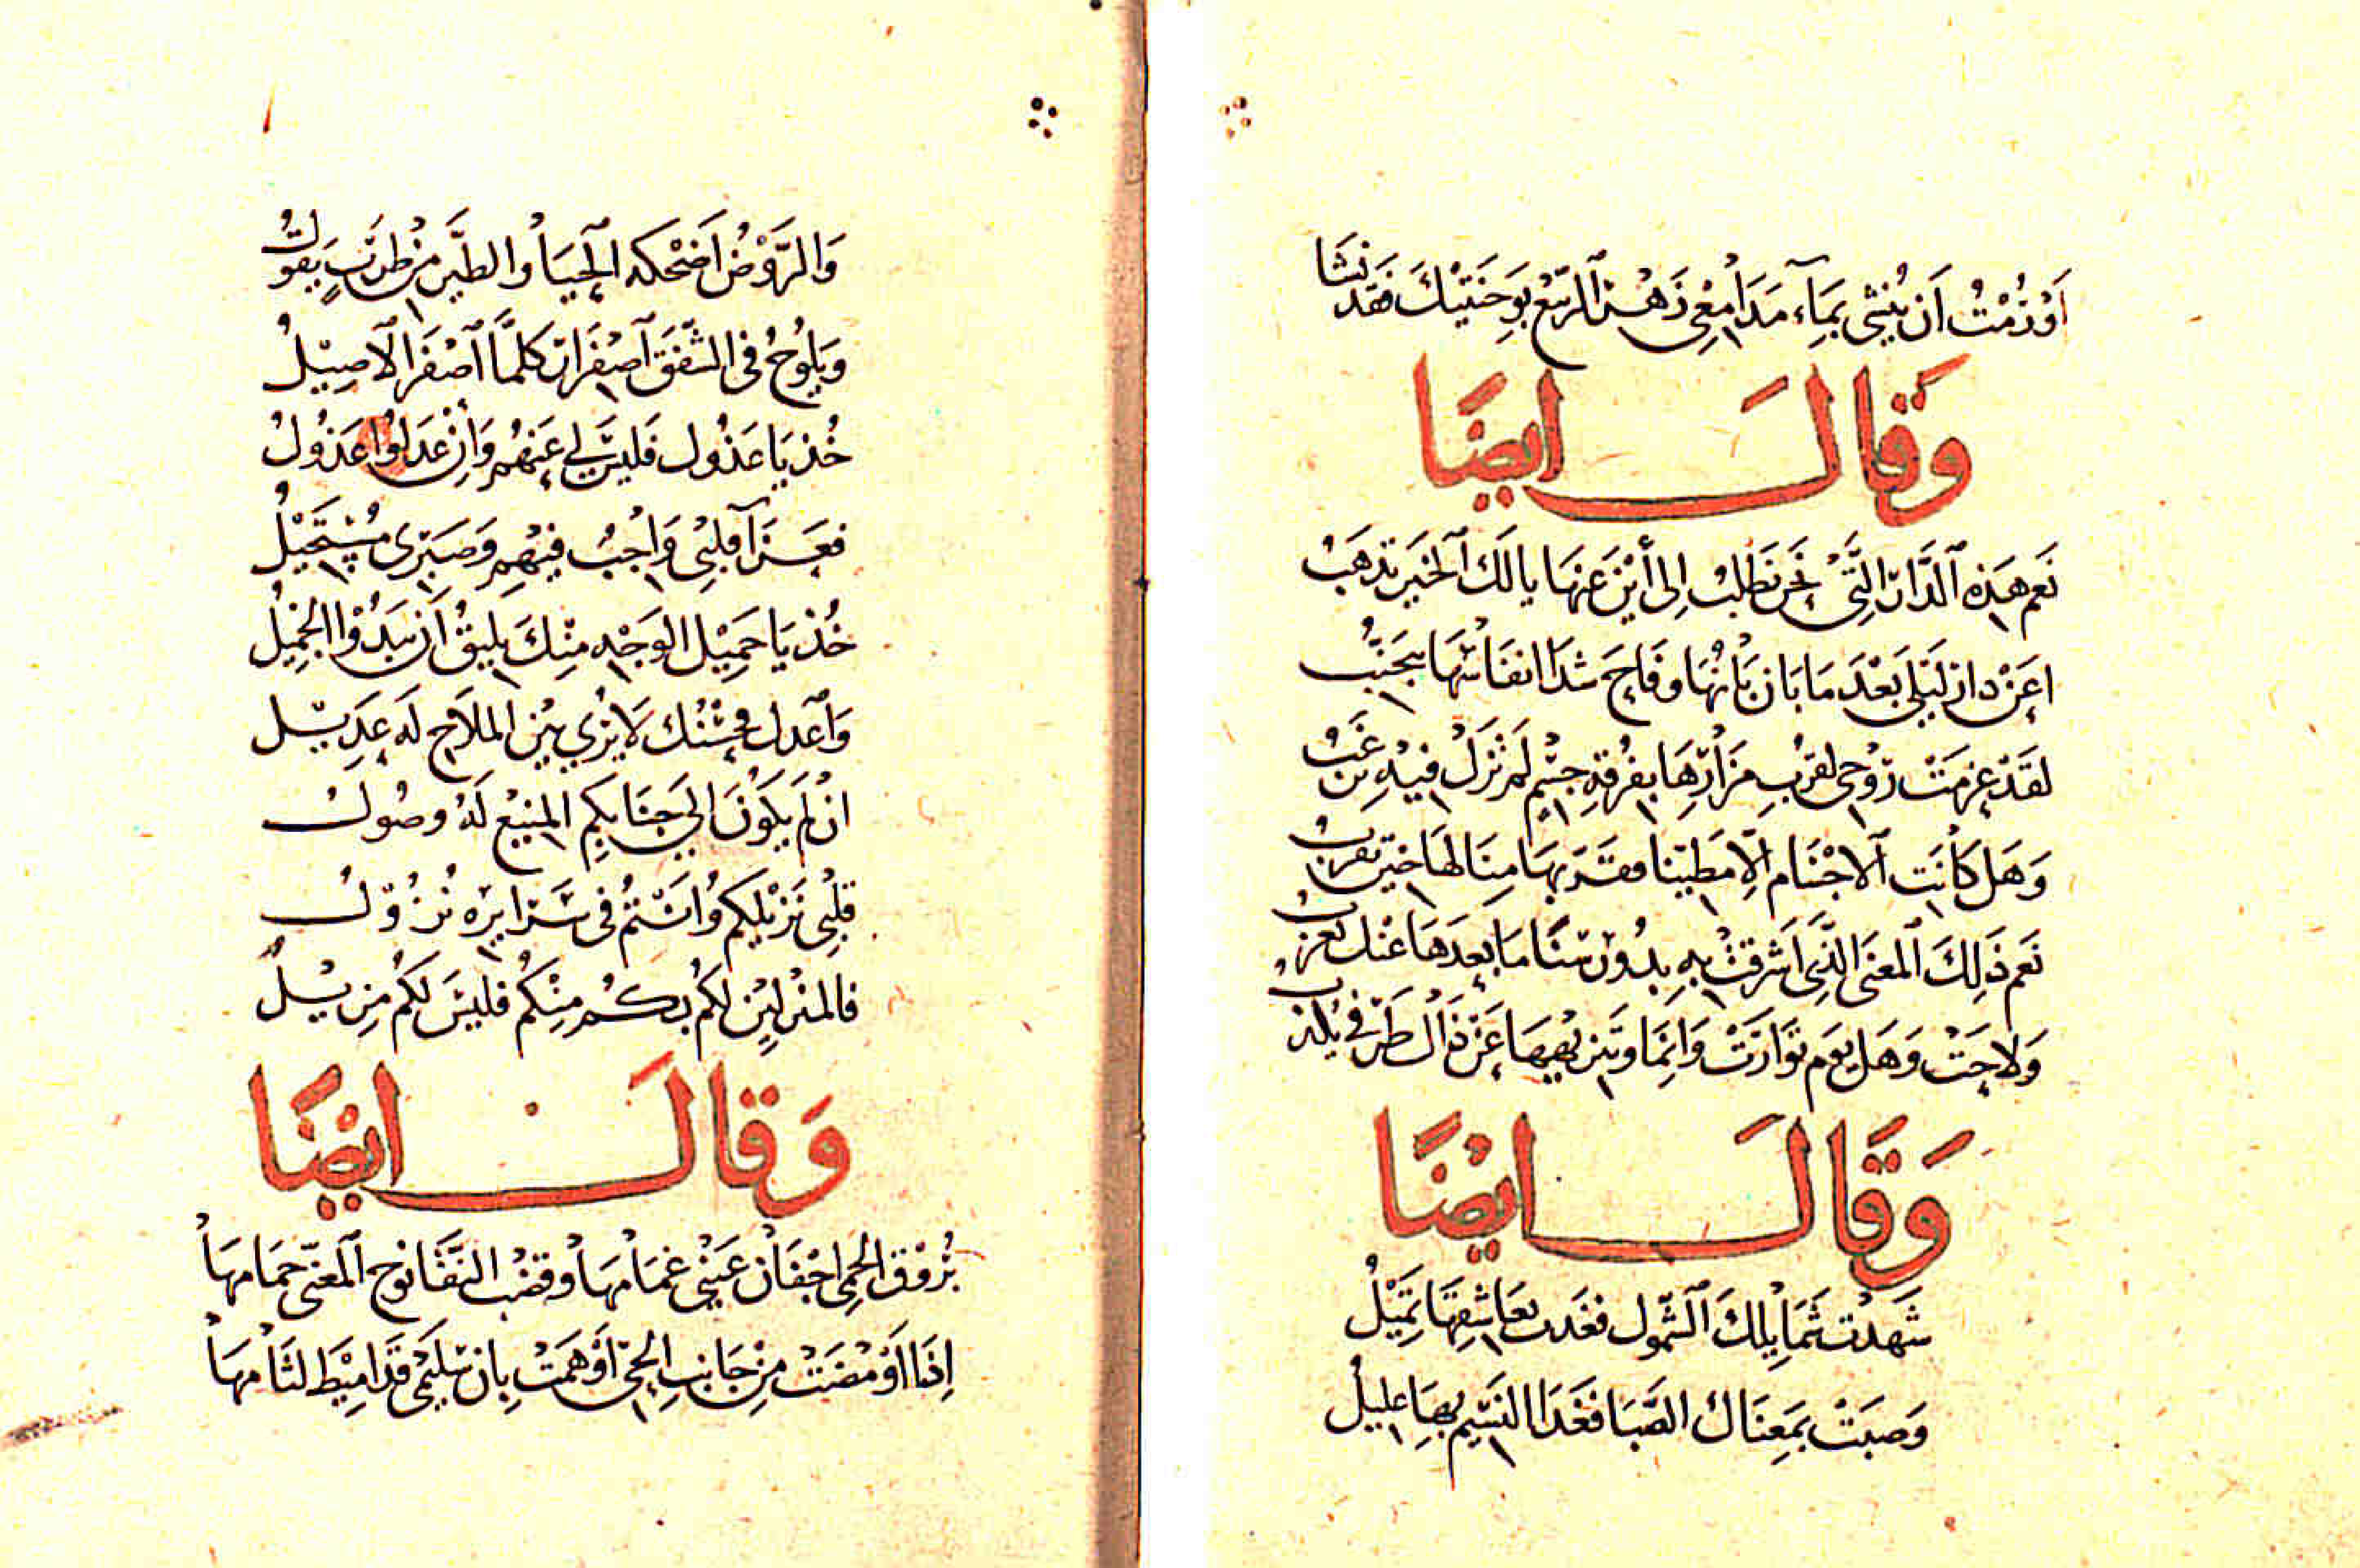 اَوْ رُمْتُ اَن يُنْشِى بِمَآءِ مَدَامِعِى زَهْرُ الرَّبِيع بِوَجْنَتَيْكَ فَقَد نَشَا
وَقَالَ ايضًا
نَعَم هَذِه الدَّار الَّتِى نَحْن نَطْلُب اِلى أَيْنَ عَنهَا يا لَكَ الخَيْر تَذهَبُ
اعَنْ دار لَيْلَى بَعْدَ مَا بَان بَانُهَا وفَاحَ شَذَا انفَاسهَا يتجَنَّبُ
لقَدْ عزمَتْ رُوْحِى لقُرْبِ مَزَارِهَا بفُرقَةِ جِسْمٍ لَم تَزَلْ فيْهِ تَرغَبُ
وَهَل كَانَت الاجْسَام اِلا مَطِيّنا فقَد بهَا مِنَّا لهَا حيْن تقربُ
نَعَم ذَلِكَ المعنَى الَّذِى اَشرقَتْ بهِ بدُوْر سَنًا مَا بعدَهَا عَنْك تعزبُ
وَلا حَتْ وَهَل يَوم تَوَارَتْ وَاِنَّمَا وتَنزيههَا عَنْ ذَا الطَرْفى يلذبُ
وَقَالَ ايْضًا
شَهدَتْ شَمَايلكَ الشّمول فغَدت بعَاشقهَا تميْلُ
وَصبَتْ بمَعنَاك الصّبَا فغَدَا النّسِيم بهَا عليْلُ
وَالرَّوْضُ اَضْحكه الحيَا وَالطَّيْر مِنْ طَرَبٍ يقولُ
وَيَلُوحُ فى الشّفَق اصْفرَار كلمَّا اصْفَرَ الاصِيْلُ
خُذ يَا عَذُول فَلَيسَ لى عَنهُم وَاِنْ عَدَلُوْا عَذُولُ
فعَزَا قلبِى وَاجْبُ فيهِم وَصَبْرى مُسْتَحِيْلُ
خُذ يَا جَمِيْل الوَجْهِ مِنْكَ يَليقُ اَن يَبْدُوْا الجَمِيْلُ
وَاعدل فحسْنُك لا يُرَي بيْن الملَاح لَه عَدِيْلُ
اِنْ لَم يَكُوْنَ اِلي جَنَابكِم المنيْع لَهُ وصُولُ
قلْبِى نَزيْلكم وَاَنْتُمُ فى سَرَايره نُزُوْلُ
فالمنْزليْنِ لكُم بكُم مِنْكُم فليْسَ لكُم مِن يسْلُ
وَقَالَ ايْضًا
بُرُوْق الحِمى اجْفَان عَيْنى غمَامُهَا وقضْب النَّقَا نوح المعَنّى حَمَامهَا
اِذَا اَوْمَضَتْ مِنْ جَانب الحىّ اَوْهَمَتْ بِان سُلَيْمى قَد اُمِيْط لثَامُهَا